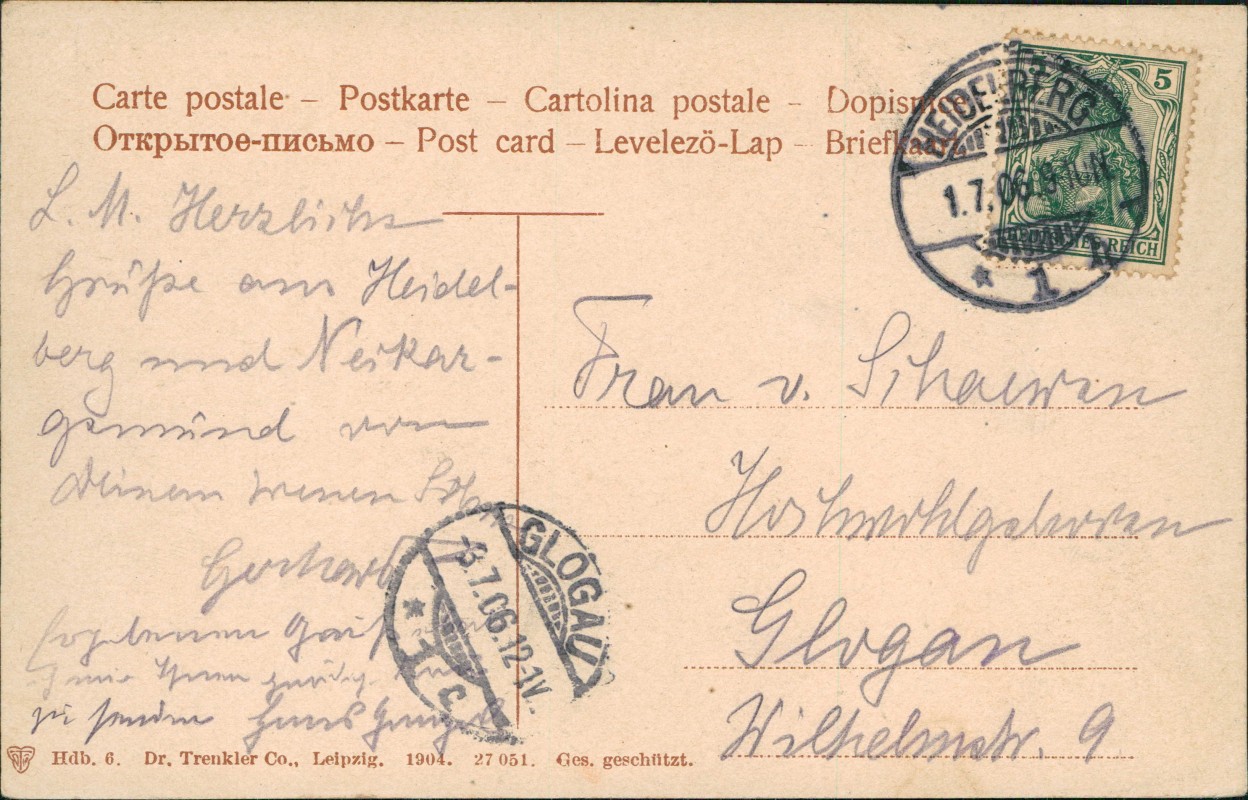 Carte postale – Postkarte – Cartolina postale – Dopisnice
Открытое-письмо – Post card – Levelezö-Lap – Briefkaart
5
HEIDELBERG
1.7.06
* 1
REICH
L. M. Herzliche
Grüße aus Heidel-
berg und Neckar-
gemünd von
Deinem treuen Sohn
Gerhard
Ergebenen Gruß
Ihnen
zu senden Hans
Frau v. Schaewen
Hochwohlgeboren
Glogau
Wilhelmstr. 9
GLOGAU
-3.7.06.12-1V.
* 1 c
Hdb. 6. Dr. Trenkler Co., Leipzig. 1904. 27 051. Ges. geschützt.